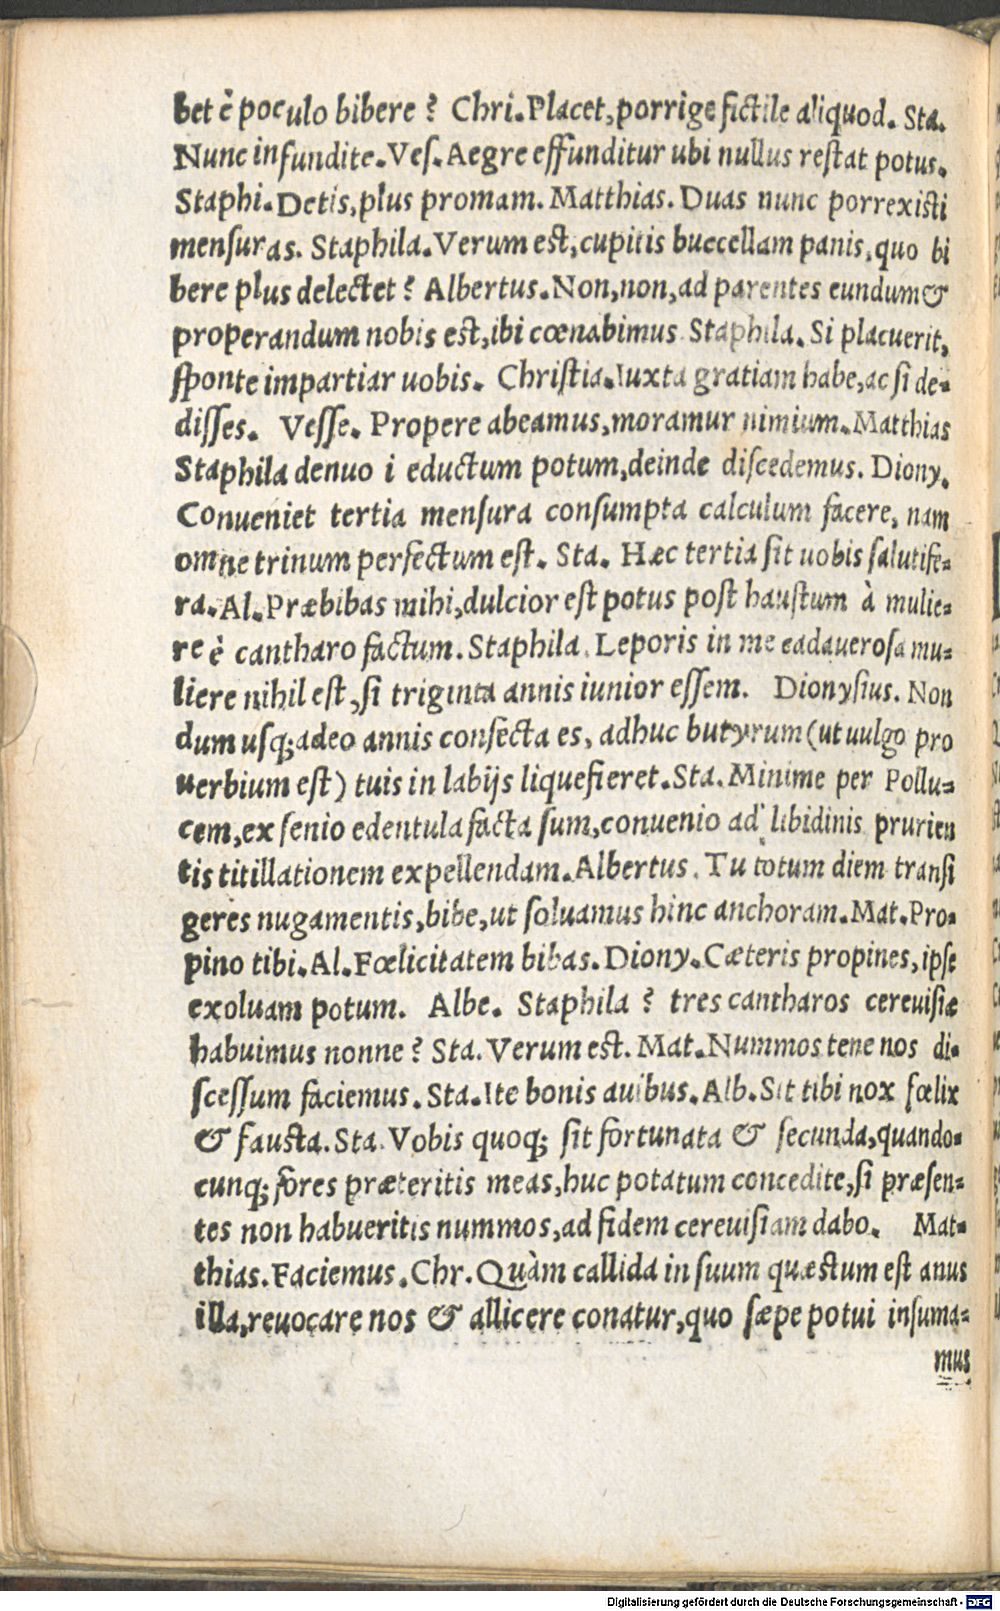 bet è poculo bibere? Chri. Placet, porrige fictile aliquod. Sta.
Nunc infundite. Ves. Aegre effunditur ubi nullus restat potus.
Staphi. Detis, plus promam. Matthias. Duas nunc porrexisti
mensuras. Staphila. Verum est, cupitis buccellam panis, quo bi
bere plus delectet? Albertus. Non, non, ad parentes eundum &
properandum nobis est, ibi cœnabimus Staphila. Si placuerit,
sponte impartiar uobis. Christia. Iuxta gratiam habe, ac si de-
disses. Vesse. Propere abeamus, moramur nimium. Matthias
Staphila denuo i eductum potum, deinde discedemus. Diony.
Conueniet tertia mensura consumpta calculum facere, nam
omne trinum perfectum est. Sta. Hæc tertia sit uobis salutife-
ra. Al. Præbibas mihi, dulcior est potus post haustum à mulie-
re è cantharo factum. Staphila. Leporis in me cadauerosa mu-
liere nihil est, si triginta annis iunior essem. Dionysius. Non
dum usq; adeo annis confecta es, adhuc butyrum (ut uulgo pro
uerbium est) tuis in labijs liquefieret. Sta. Minime per Pollu-
cem, ex senio edentula facta sum, conuenio ad libidinis prurien
tis titillationem expellendam. Albertus. Tu totum diem transi
geres nugamentis, bibe, ut soluamus hinc anchoram. Mat. Pro-
pino tibi. Al. Fœlicitatem bibas. Diony. Cæteris propines, ipse
exoluam potum. Albe. Staphila? tres cantharos cereuisiæ
habuimus nonne? Sta. Verum est. Mat. Nummos tene nos di-
scessum faciemus. Sta. Ite bonis auibus. Alb. Sit tibi nox fœlix
& fausta. Sta. Vobis quoq; sit fortunata & secunda, quando-
cunq; fores præteritis meas, huc potatum concedite, si præsen-
tes non habueritis nummos, ad fidem cereuisiam dabo. Mat-
thias. Faciemus. Chr. Quàm callida in suum quæstum est anus
illa, reuocare nos & allicere conatur, quo sæpe potui insuma-
mus
Digitalisierung gefördert durch die Deutsche Forschungsgemeinschaft - DFG